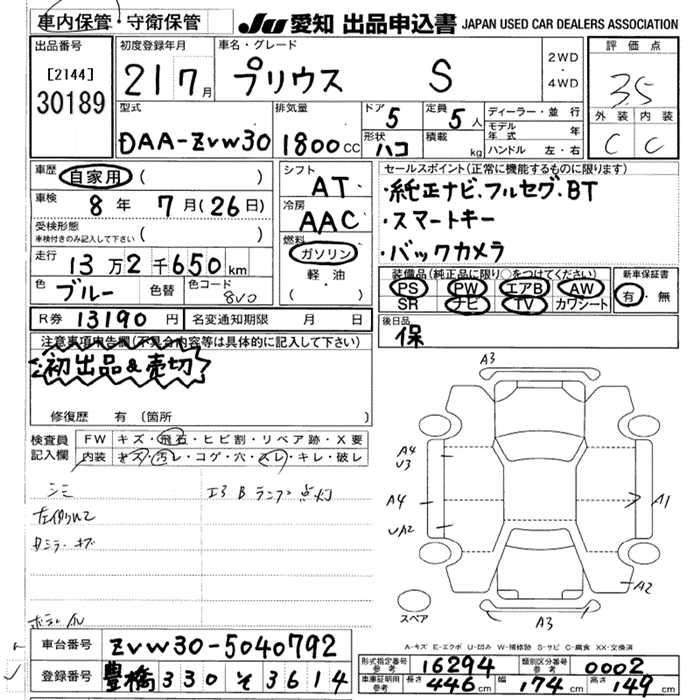 車内保管・守衛保管
JU 愛知 出品申込書 JAPAN USED CAR DEALERS ASSOCIATION
出品番号
[2144]
30189
初度登録年月
21 7月
車名・グレード
プリウス S
2WD
・
4WD
評価点
3.5
外装 内装
C C
型式
DAA-ZVW30
排気量
1800cc
ドア 5
形状 ハコ
定員 5人
積載 kg
ディーラー・並 行
モデル年式 年
ハンドル 左・右
車歴 自家用 ( )
車検 8年 7月(26日)
受検形態
※検付きのみ記入して下さい ( )
走行 13万2千650km
色 ブルー 色替
色コード 8V0
シフト AT
冷房 AAC
燃料 ガソリン
軽・油
( )
セールスポイント(正常に機能するものに限ります)
・純正ナビ、フルセグ、BT
・スマートキー
・バックカメラ
装備品(純正品に限り○をつけてください)
PS PW エアB AW
SR ナビ TV カワシート
新車保証書
有・無
R券 13190円 名変通知期限 月 日
後日品
保
注意事項申告欄(不具合内容等は具体的に記入して下さい)
初出品&売切
修復歴 有(箇所 )
検査員記入欄
FW キズ・飛石・ヒビ割・リペア跡・X要
内装 キズ・汚レ・コゲ・穴・スレ・キレ・破レ
シミ エアBランプ点灯
A3
A4
U3
A4
A1
A2
A3
スペア
A-キズ E-エクボ U-凹み W-補修跡 S-サビ C-腐食 XX-交換済
車台番号 ZVW30-5040792
登録番号 豊橋 330 そ 3614
形式指定番号 参考 16294
類別区分番号 参考 0002
車庫証明用 参考 長さ 446cm 幅 174cm 高さ 149cm